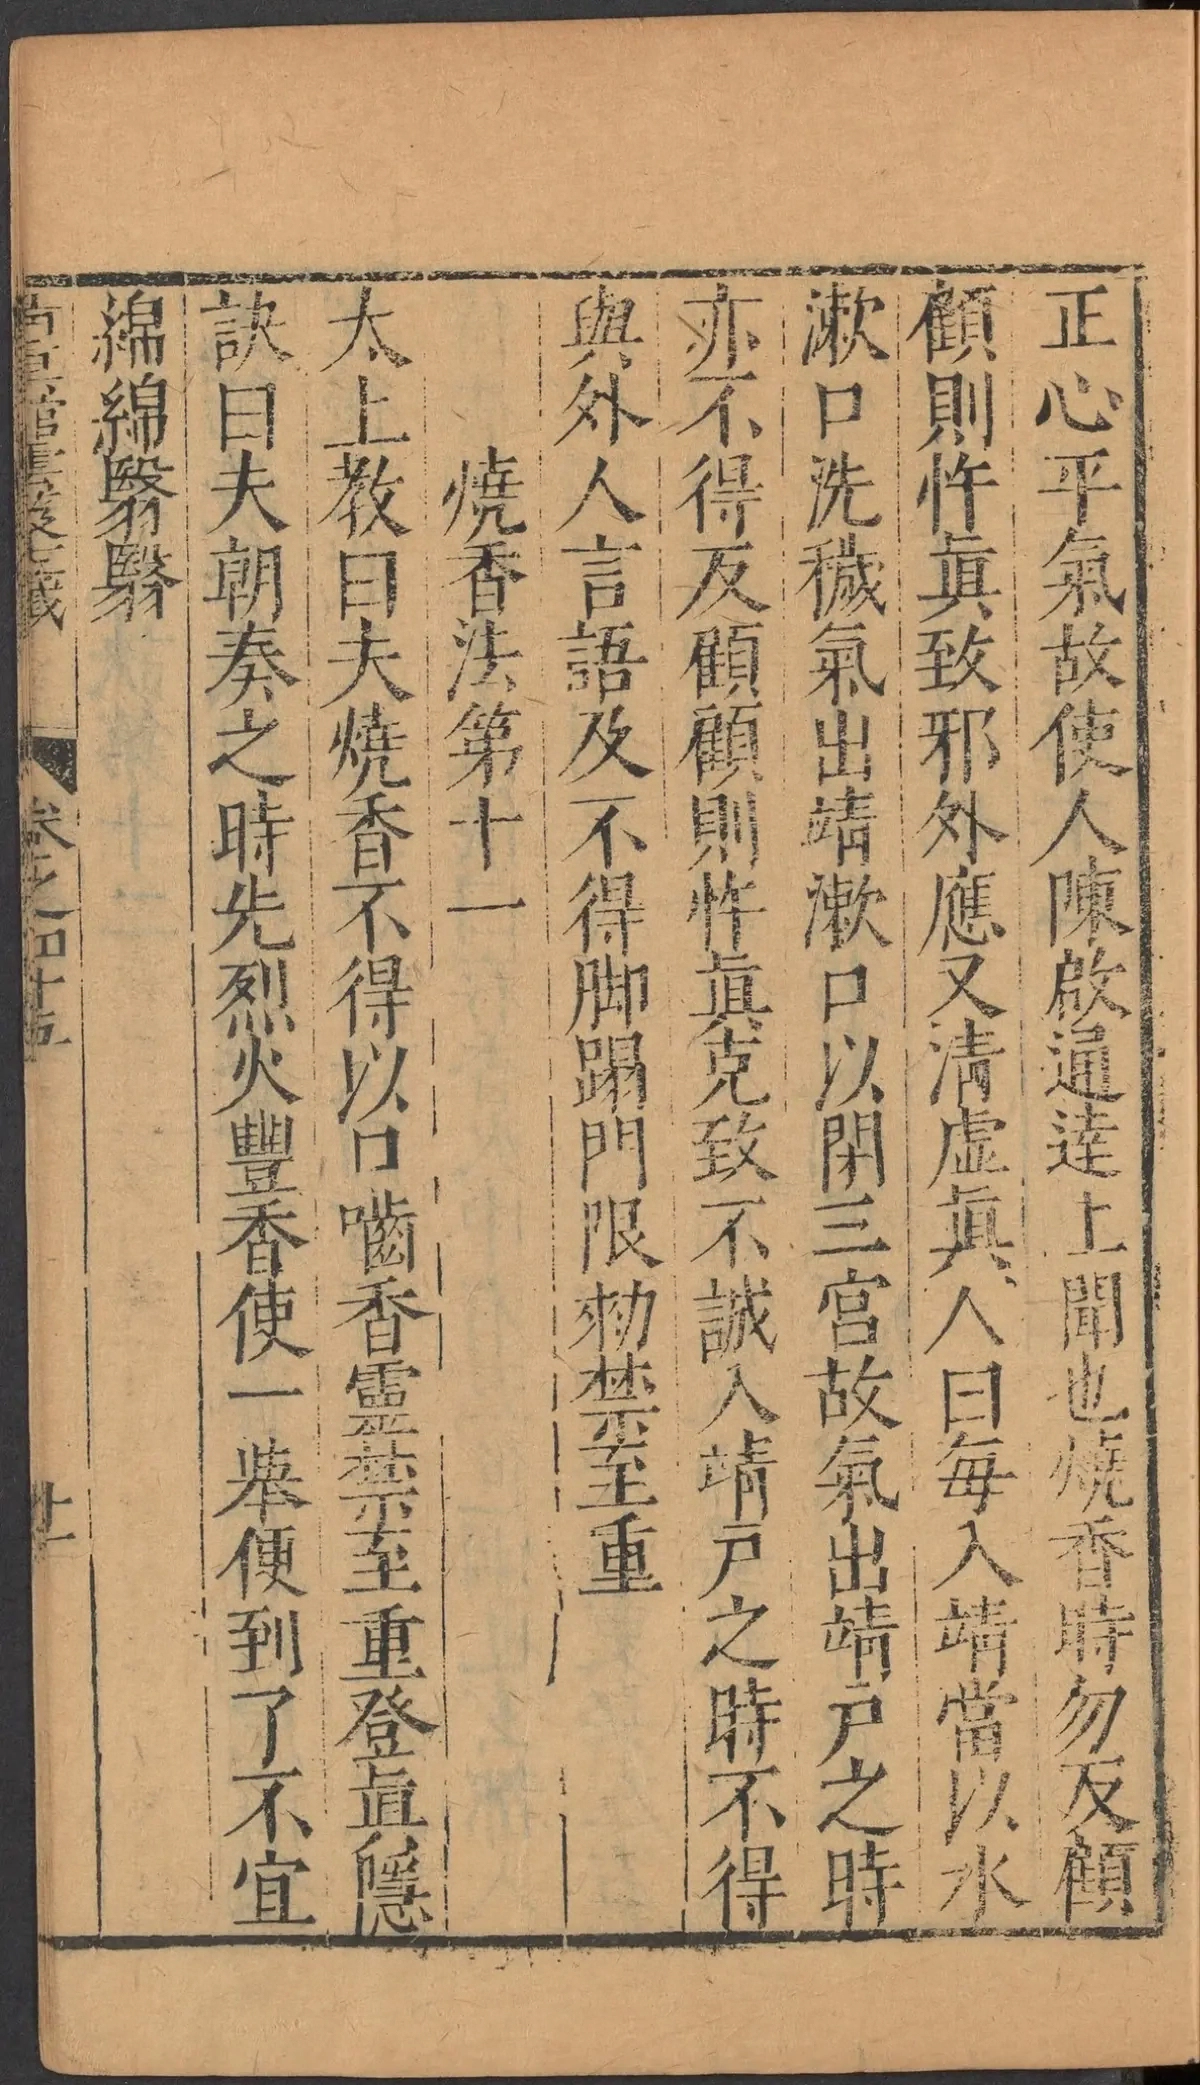 正心平氣故使人陳啟逼達上聞也燒香時勿反顧
顧則忤眞致邪外應又清虛眞人曰每入靖當以水
漱口洗穢氣出靖漱口以閉三宮故氣出靖戸之時
亦不得反顧顧則忤眞克致不誠入靖戸之時不得
與外人言語及不得脚蹋門限勑禁至重
燒香法第十一
太上教曰夫燒香不得以口嚙香靈禁至重登眞隱
訣曰夫朝奏之時先烈火豐香使一舉便到了不宜
綿綿翳翳
卷之四十五
廿一